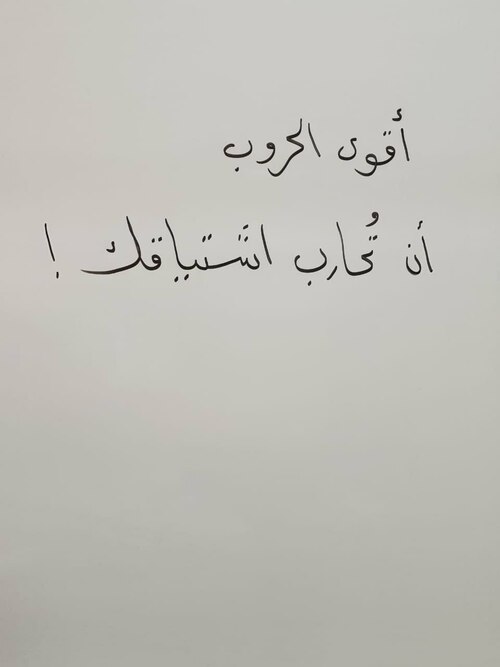 أقوى الحروب
أن تُحارب اشتياقك !